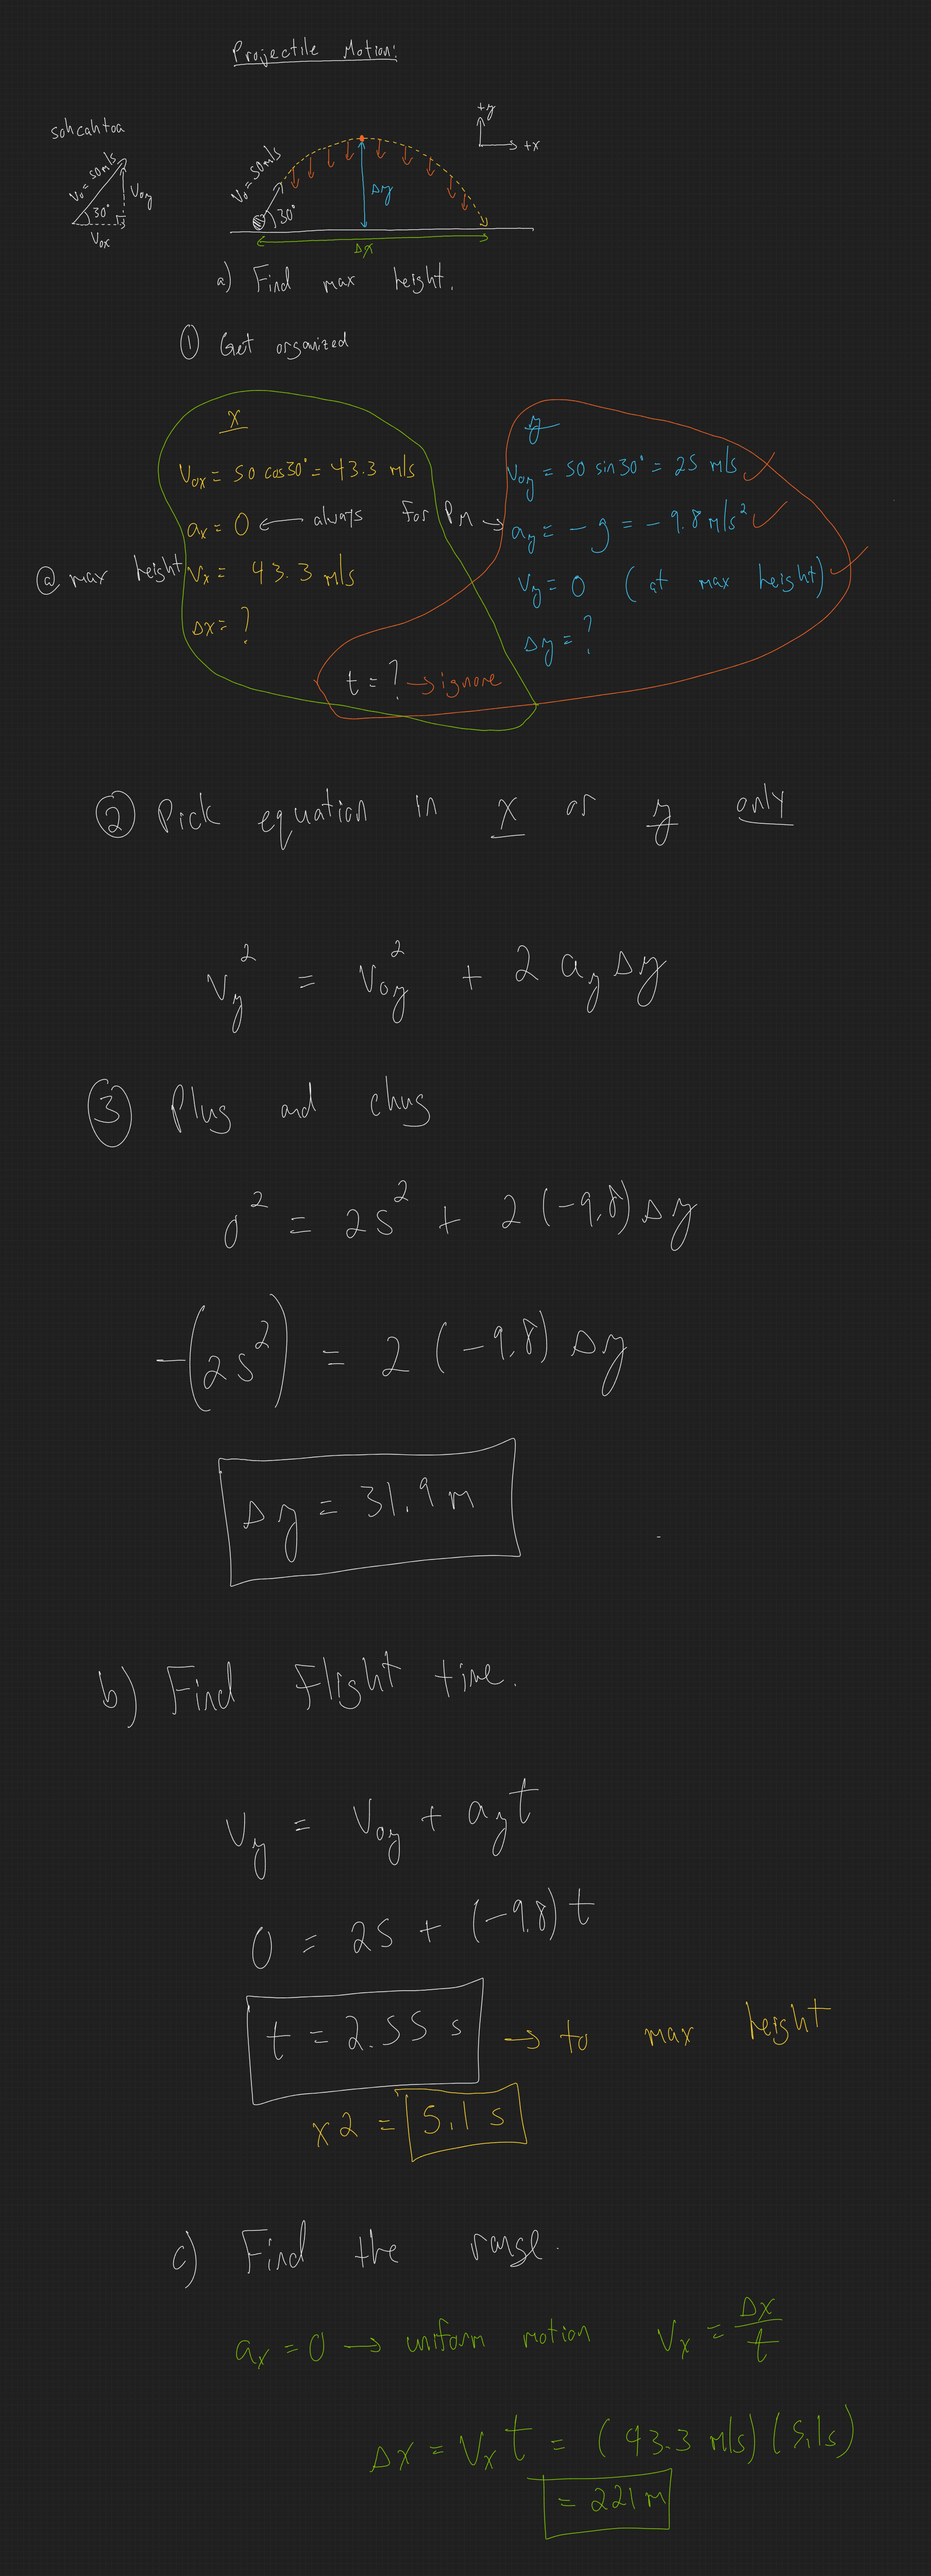 Projectile Motion:
sohcahtoa
V₀ = 50 m/s
30°
V₀y
V₀x
V₀ = 50 m/s
30°
Δy
Δx
+y
+x
a) Find max height.
① Get organized
x
V₀x = 50 cos30° = 43.3 m/s
aₓ = 0 ← always for PM →
@ max height Vₓ = 43.3 m/s
Δx = ?
y
V₀y = 50 sin30° = 25 m/s ✓
ay = -g = -9.8 m/s² ✓
Vy = 0 (at max height) ✓
Δy = ?
t = ? → ignore
② Pick equation in x or y only
Vy² = V₀y² + 2 ay Δy
③ Plug and chug
0² = 25² + 2 (-9.8) Δy
-(25²) = 2 (-9.8) Δy
Δy = 31.9 m
b) Find Flight time.
Vy = V₀y + ay t
0 = 25 + (-9.8) t
t = 2.55 s → to max height
x2 = 5.1 s
c) Find the range.
aₓ = 0 → uniform motion Vₓ = Δx/t
Δx = Vₓ t = (43.3 m/s) (5.1s)
= 221 m